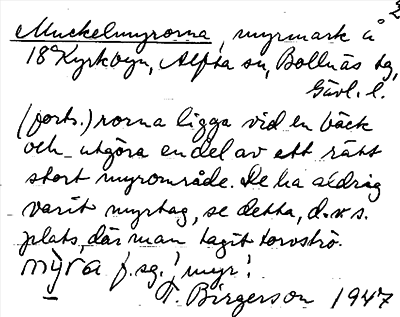 2
Muckelmyrorna, myrmark å
18 Kyrkbyn, Alfta sn, Bollnäs tg,
Gävl. l.
(forts.) rorna ligga vid en bäck
och utgöra en del av ett rätt
stort myrområde. De ha aldrig
varit myrtag, se detta, d. v. s.
plats, där man tagit torvströ.
myra f. sg. ! myr !
T. Birgerson 1947